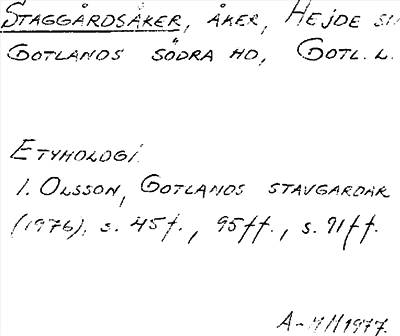 STAGGÅRDSÅKER, ÅKER, HEJDE
GOTLANDS SÖDRA HD, GOTL. L.
ETYMOLOGI.
I. OLSSON, GOTLANDS STAVGARDAR
(1976), s. 45f., 95ff., s. 91ff.
A-M H 1977.